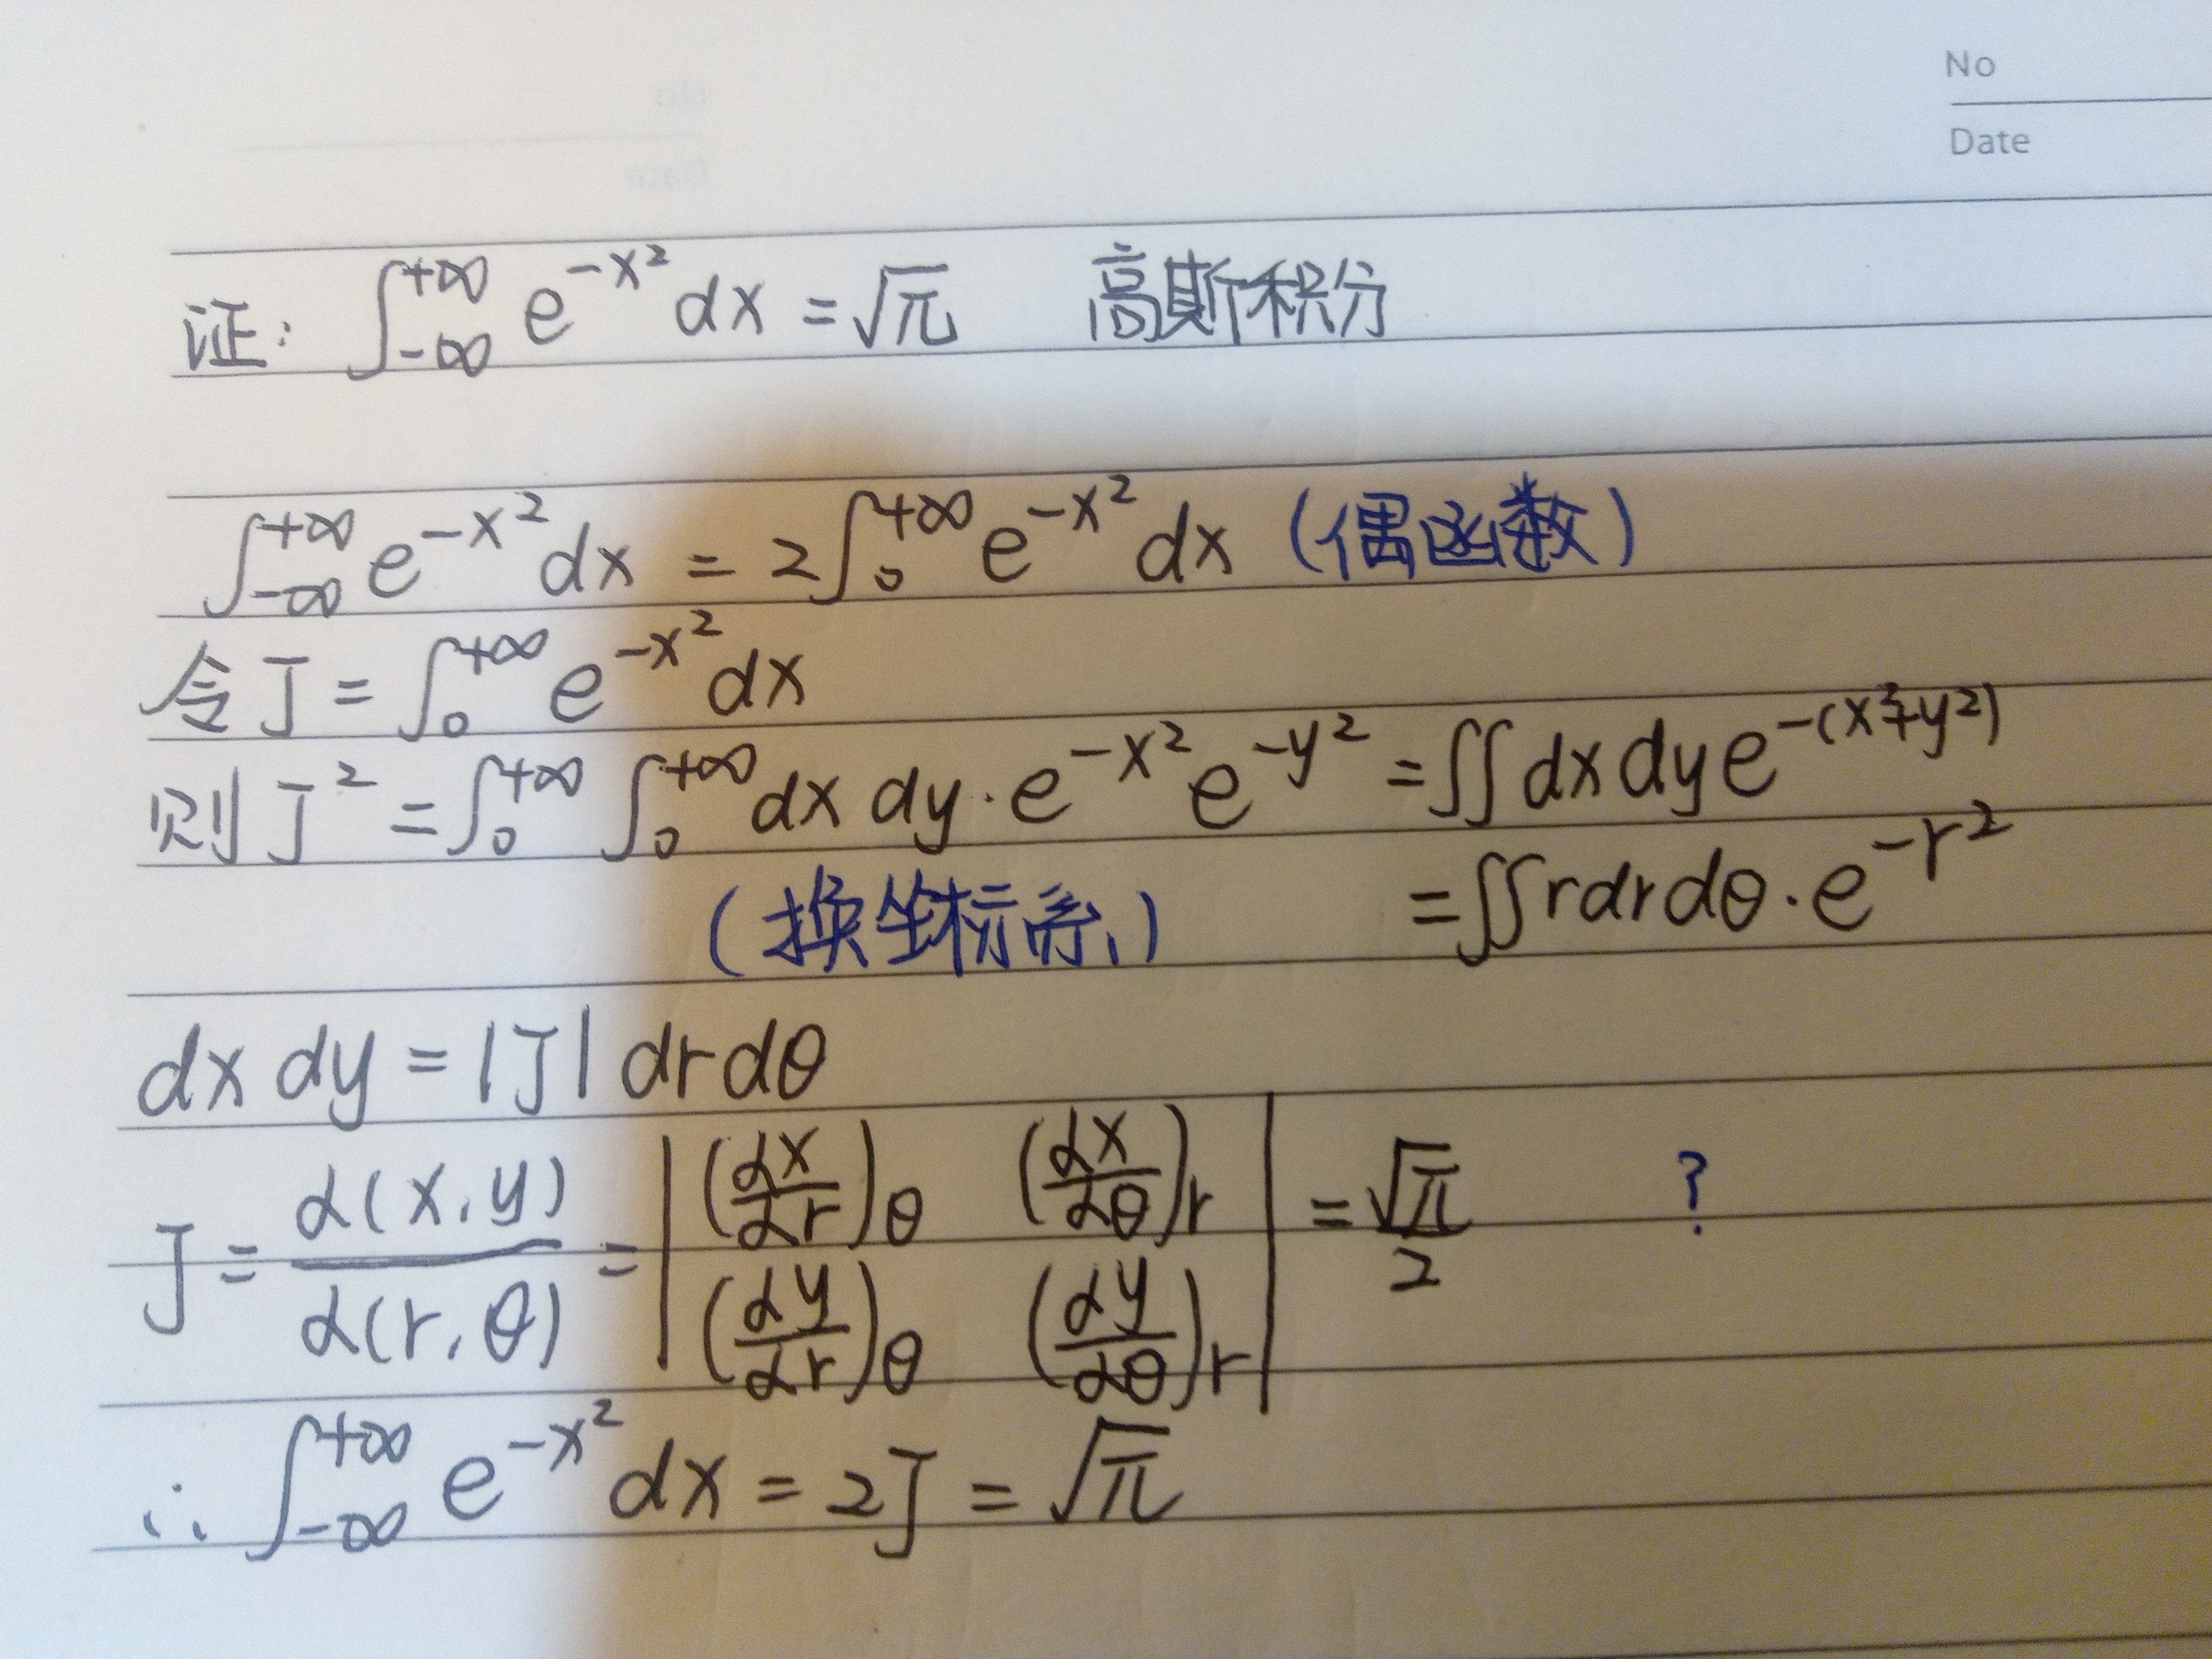 No
Date
证: ∫_{-∞}^{+∞} e^{-x²} dx = √π 高斯积分
∫_{-∞}^{+∞} e^{-x²} dx = 2∫_0^{+∞} e^{-x²} dx (偶函数)
令 J = ∫_0^{+∞} e^{-x²} dx
则 J² = ∫_0^{+∞} ∫_0^{+∞} dx dy · e^{-x²} e^{-y²} = ∬ dx dy e^{-(x²+y²)}
(换坐标系) = ∬ r dr dθ · e^{-r²}
dx dy = |J| dr dθ
J = ∂(x,y)/∂(r,θ) = |(∂x/∂r)_θ (∂x/∂θ)_r; (∂y/∂r)_θ (∂y/∂θ)_r| = √π/2 ?
∴ ∫_{-∞}^{+∞} e^{-x²} dx = 2J = √π